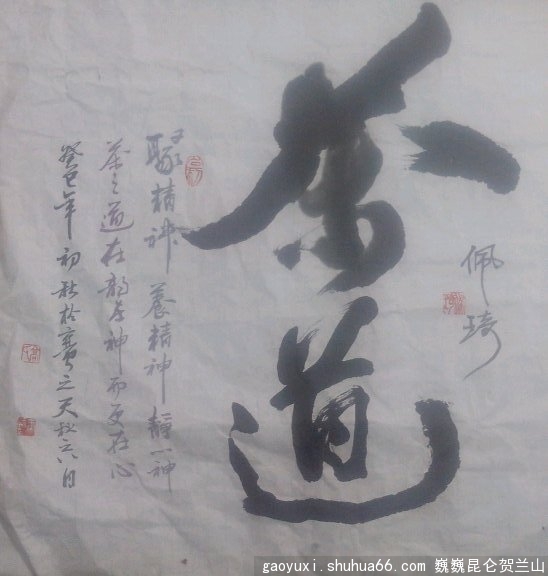 佩琦
茶道
聚精神 養精神 靜一神
茶之道在韵在神而更在心
癸巳年初秋於之天秋六日
gaoyuxi.shuhua66.com 巍巍昆仑贺兰山